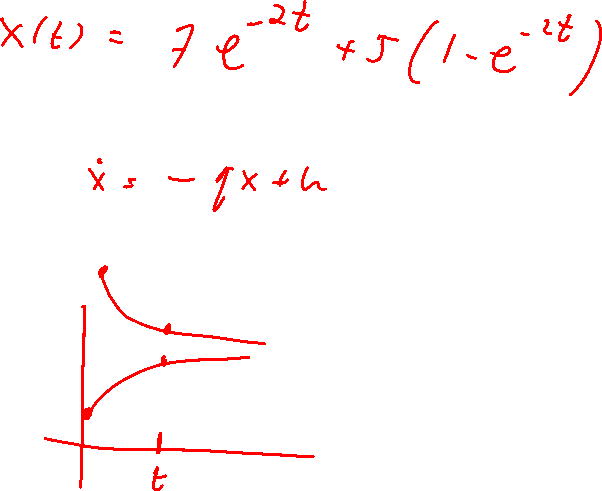 x(t) = 7 e^{-2t} + 5(1 - e^{-2t})
ẋ = -qx + u
t